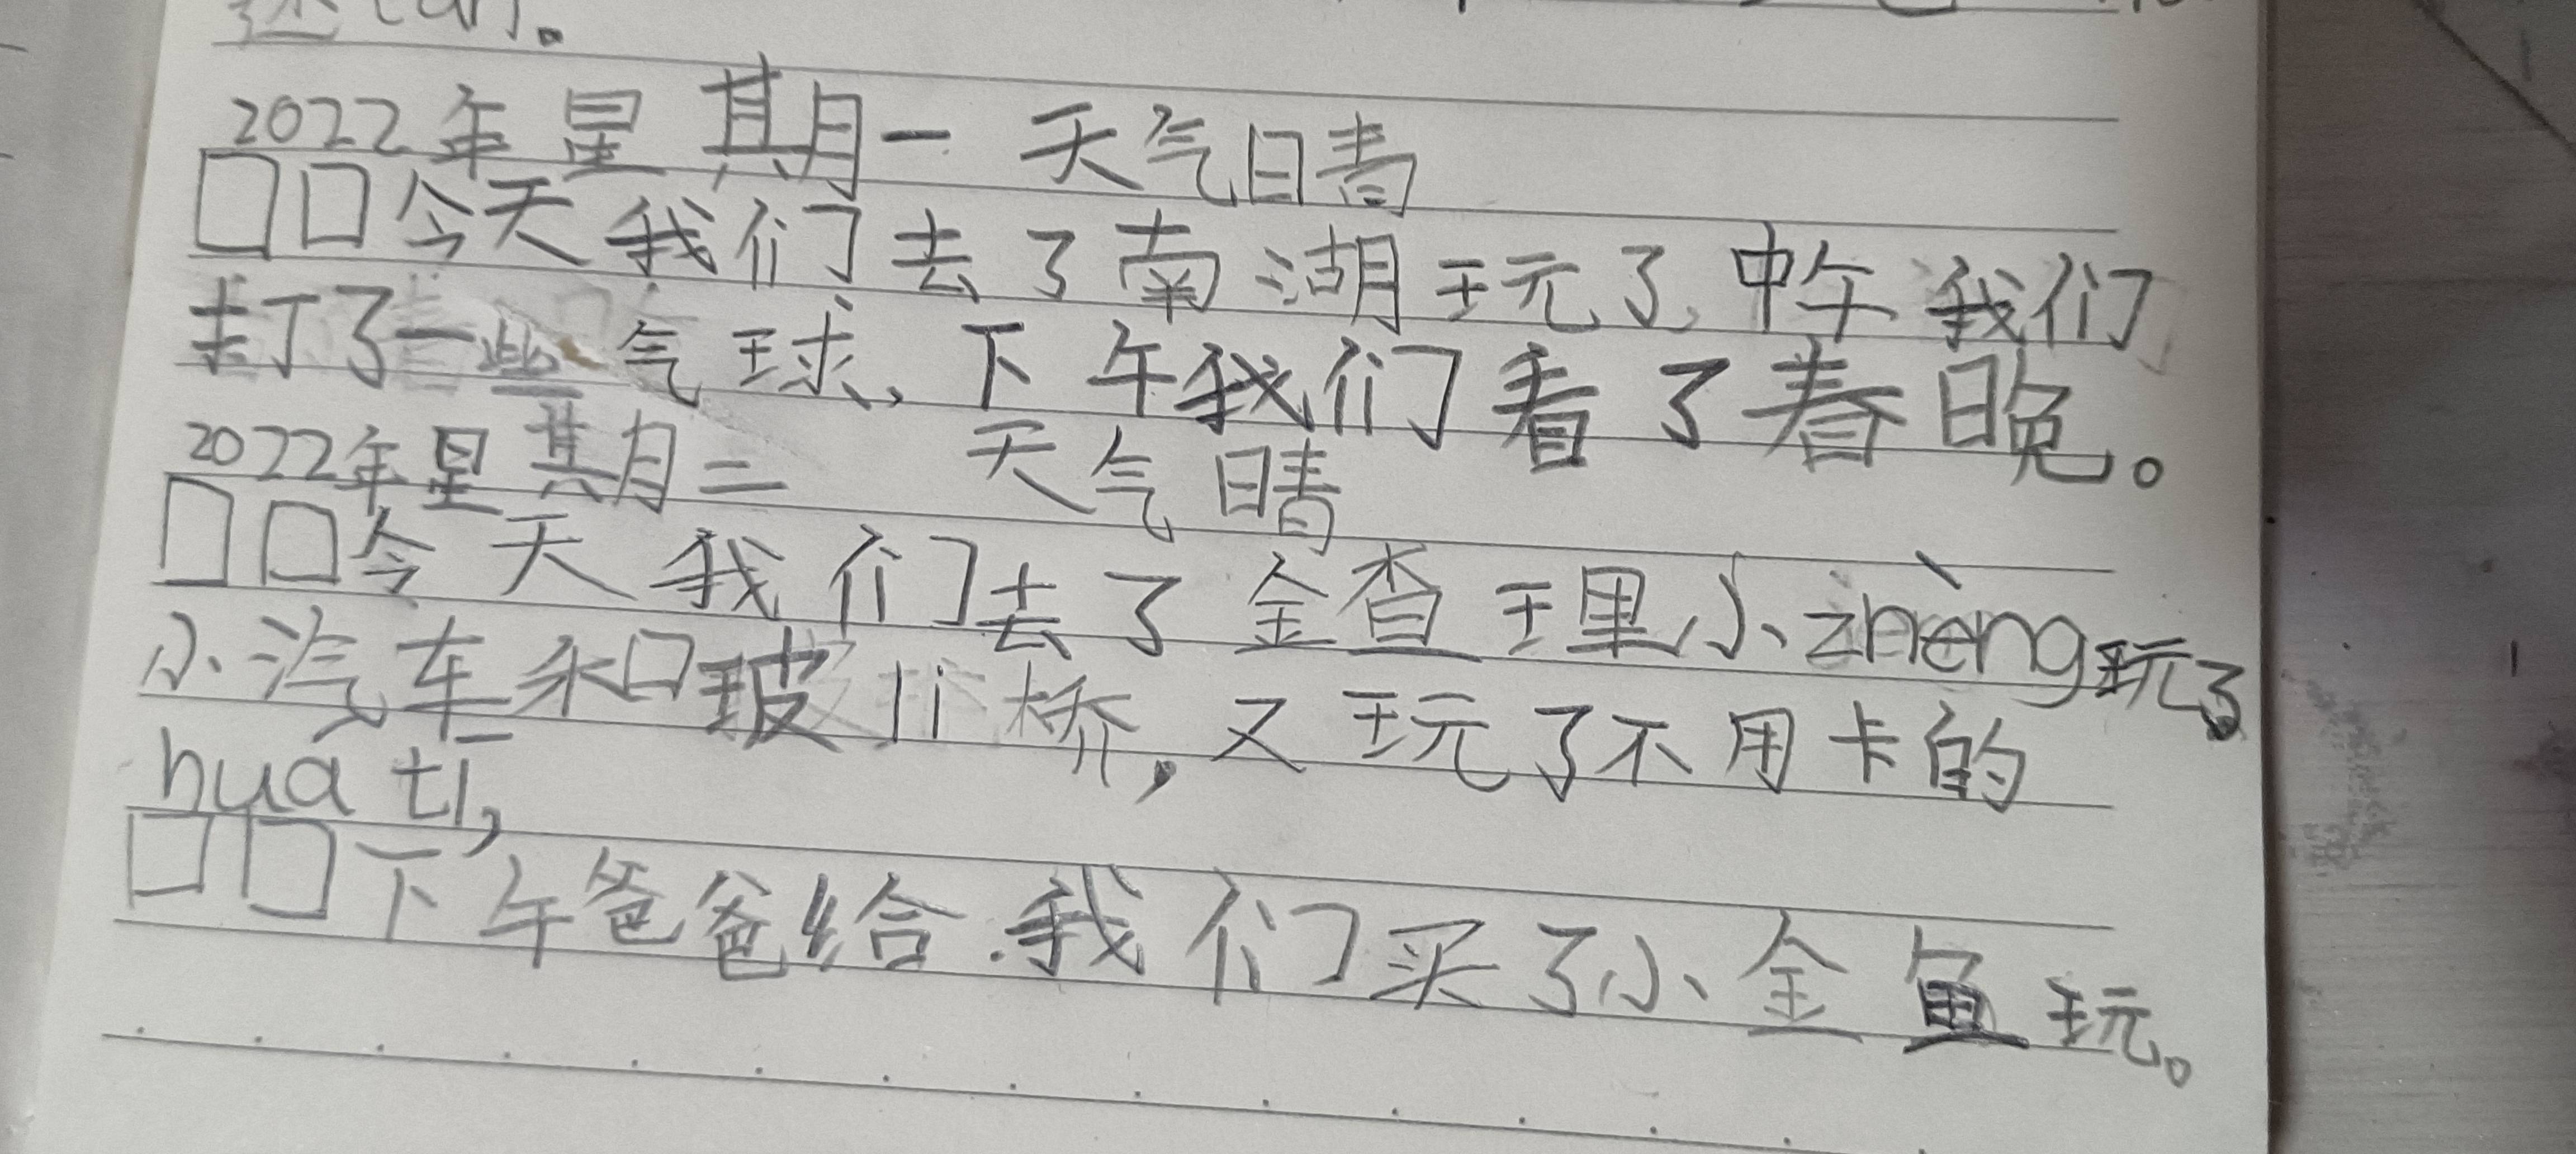 2022年星期一 天气晴
□□今天我们去了南湖玩了,中午我们
打了一些气球,下午我们看了春晚。
2022年星期二 天气晴
□□今天我们去了金查理小zhèng玩了
小汽车和玻li桥,又玩了不用卡的
huá tī,
□□下午爸爸给我们买了小金鱼玩。